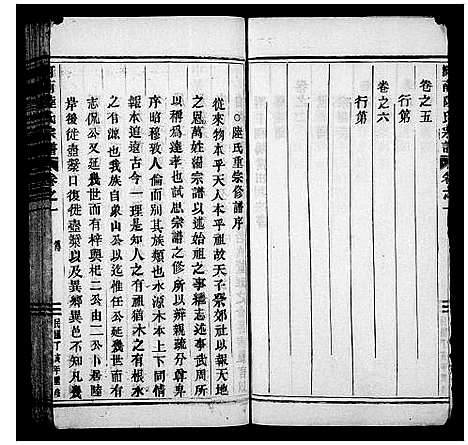 卷之五
行第
卷之六
行第
陸氏重宗修譜序
從來物本乎天人本乎祖故天子祭郊社以報天地
之功恩人輯宗譜以述始祖之事繼志述事武周所
以稱爲達孝也試思宗譜之修所以辨親疏分尊卑
序昭穆致人倫而別其族類也水源木本上下同情
本追遠古今一理是知人之有祖猶木之有根水
之有源也我族自象山公以迄惟任公延幾世而有
志侃公又延幾世而有梓與杞二公由二公卜居陸
岸後徙壺鎭口復徙壺鎭以及異鄉異邑不知凡幾
陸氏宗譜
卷之一
民國丁亥年重修